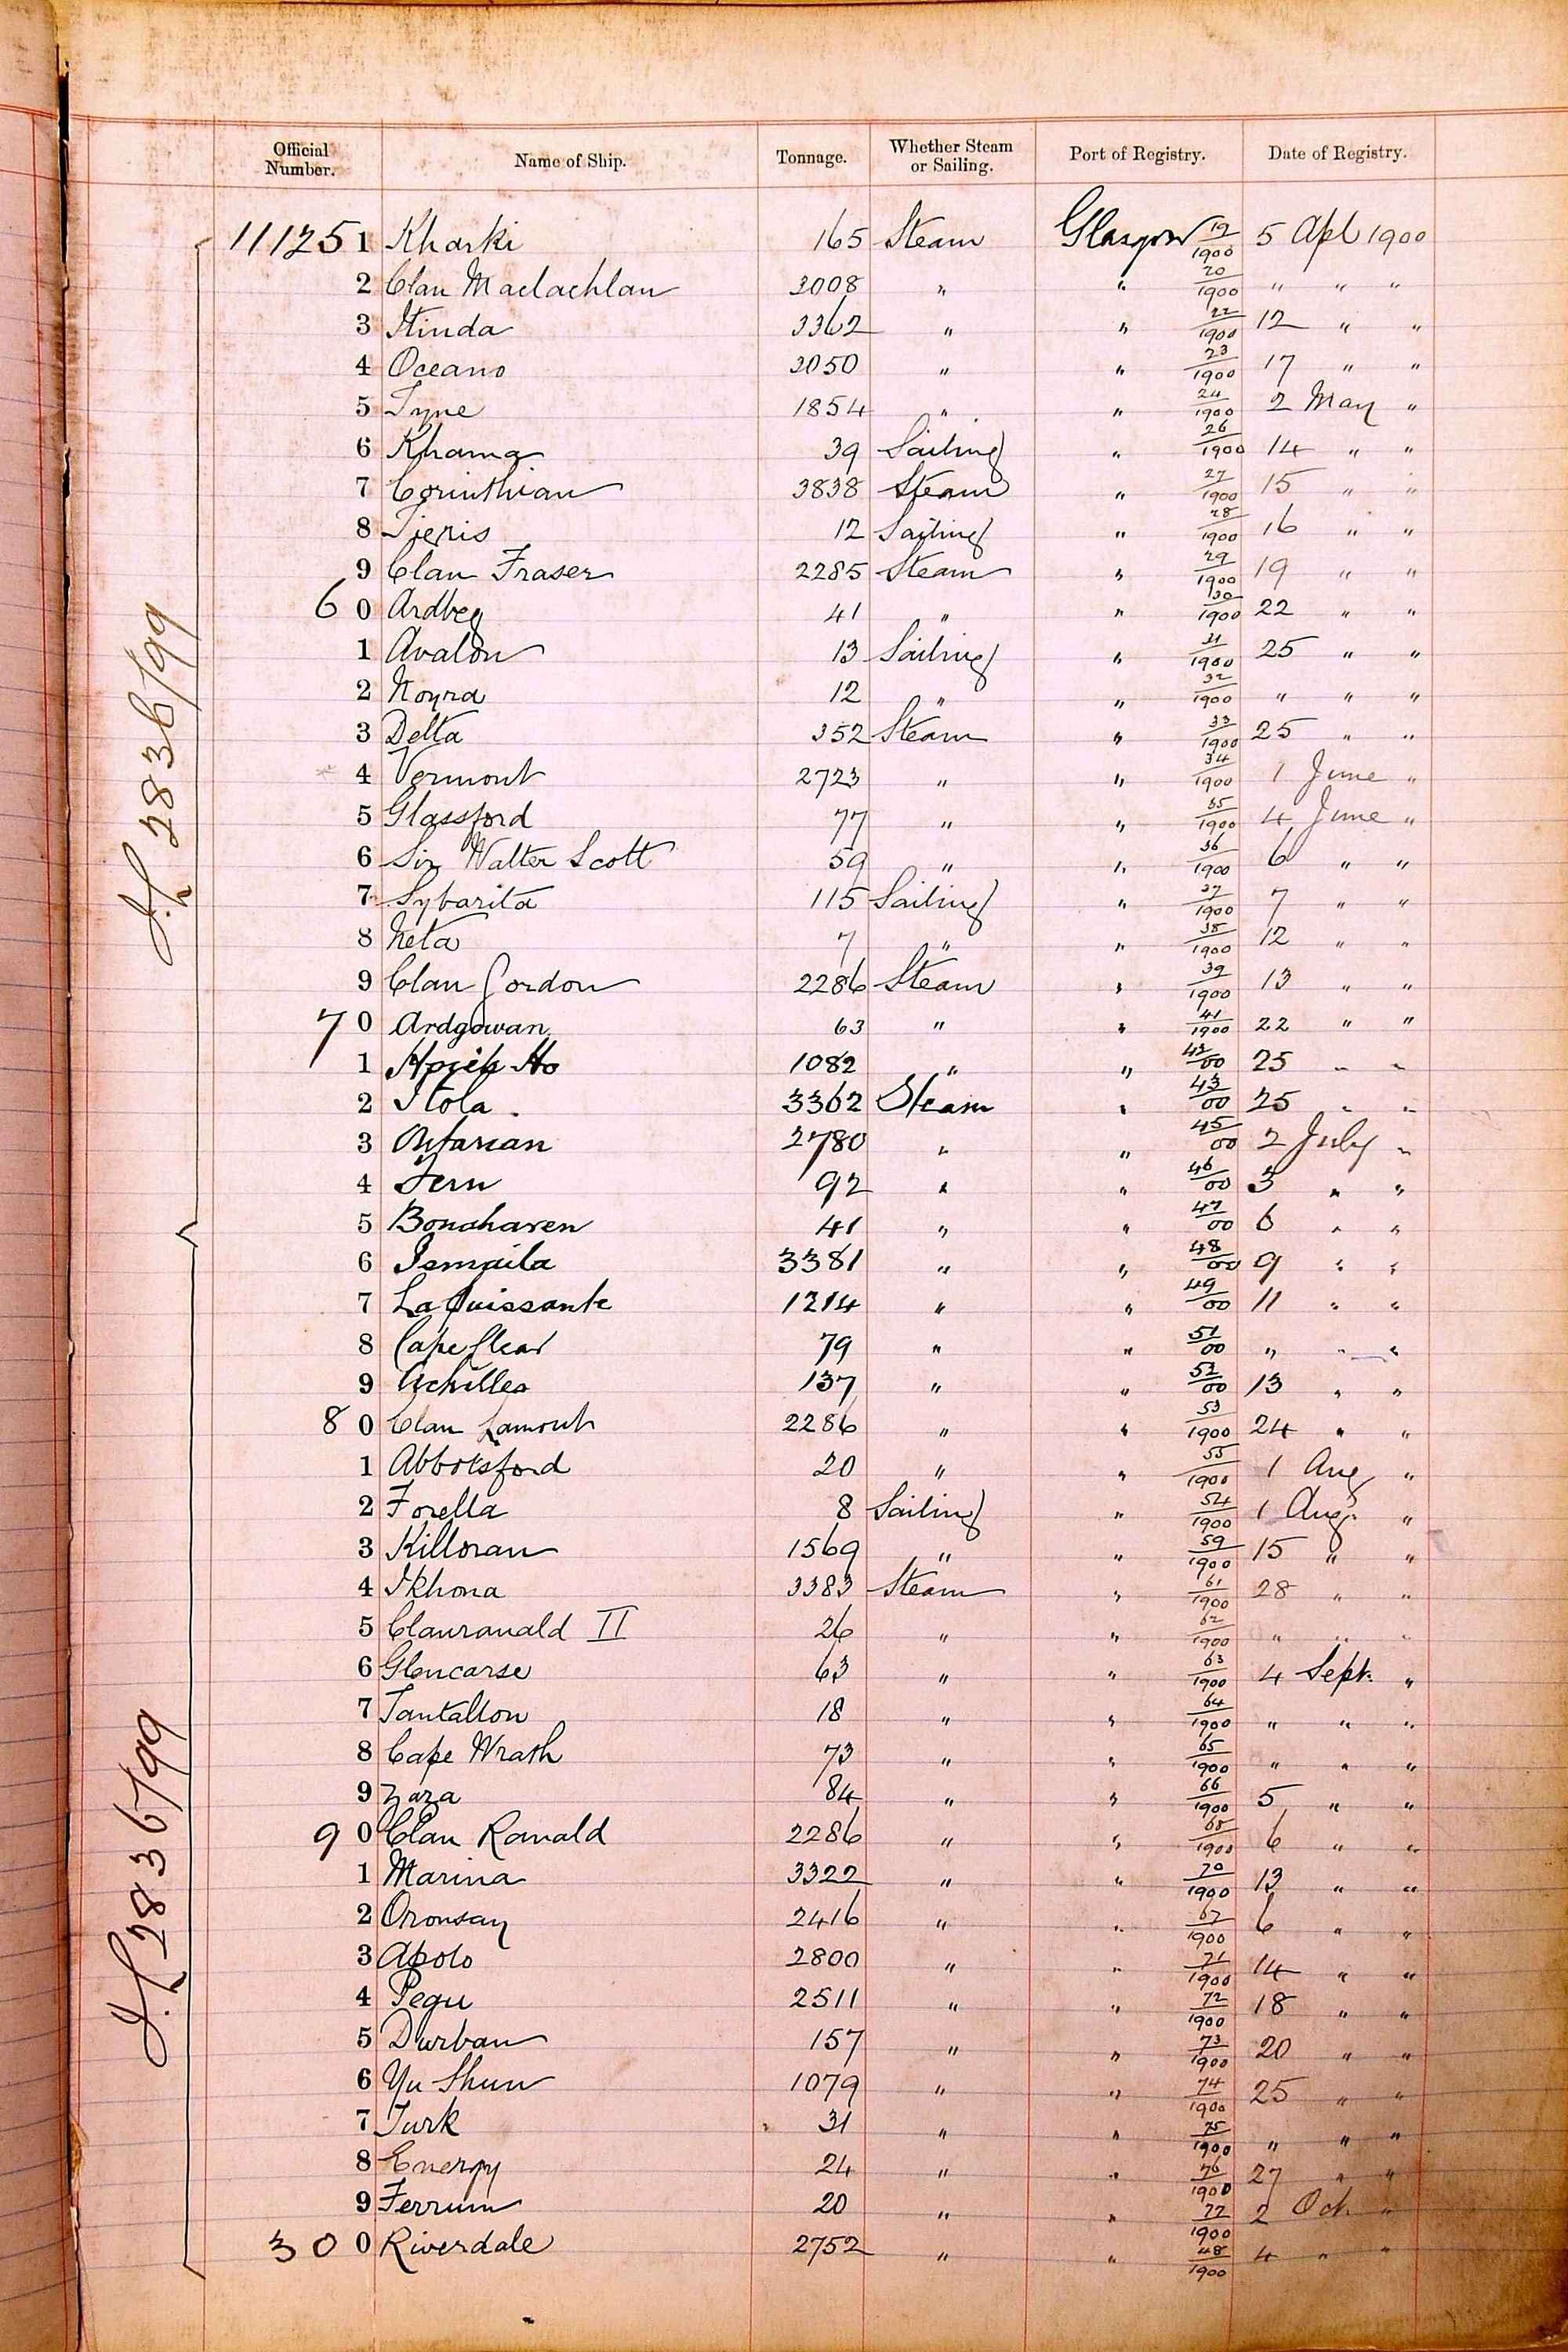 Official Number. Name of Ship. Tonnage. Whether Steam or Sailing. Port of Registry. Date of Registry.
111251 Kharki 165 Steam Glasgow 19/1900 5 Apl 1900
2 Clan Maclachlan 3008 " " 20/1900 " " "
3 Itinda 3362 " " 22/1900 12 " "
4 Oceano 3050 " " 23/1900 17 " "
5 Tyne 1854 " " 24/1900 2 May "
6 Khama 39 Sailing " 26/1900 14 " "
7 Corinthian 3838 Steam " 27/1900 15 " "
8 12 Sailing " 28/1900 16 " "
9 Clan Fraser 2285 Steam " 29/1900 19 " "
60 Ardbeg 41 " " 30/1900 22 " "
1 Avalon 13 Sailing " 31/1900 25 " "
2 12 " " 32/1900 " " "
3 Delta 352 Steam " 33/1900 25 " "
4 Vermont 2723 " " 34/1900 1 June "
5 Glassford 77 " " 35/1900 4 June "
6 Sir Walter Scott 59 " " 36/1900 6 " "
7 Sybarita 115 Sailing " 37/1900 7 " "
8 Neta 7 " " 38/1900 12 " "
9 Clan Gordon 2286 Steam " 39/1900 13 " "
70 Ardgowan 63 " " 41/1900 22 " "
1 Hsieh Ho 1082 " " 42/00 25 " "
2 Itola . 3362 Steam " 43/00 25 " "
3 Ontarian 2780 " " 45/00 2 July "
4 Fern 92 " " 46/00 5 " "
5 Bonahaven 41 " " 47/00 6 " "
6 Ismaila 3381 " " 48/00 9 " "
7 La Puissante 1214 " " 49/00 11 " "
8 Cape Clear 79 " " 51/00 " " "
9 Achilles 137 " " 52/00 13 " "
80 Clan Lamont 2286 " " 53/1900 24 " "
1 Abbotsford 20 " " 55/1900 1 Aug "
2 Forella 8 Sailing " 54/1900 1 Aug. "
3 Killoran 1569 " " 59/1900 15 " "
4 Ikhona 3383 Steam " 61/1900 28 " "
5 Clanranald II 26 " " 62/1900 " " "
6 Glencarse 63 " " 63/1900 4 Sept. "
7 Tantallon 18 " " 64/1900 " " "
8 Cape Wrath 73 " " 65/1900 " " "
9 Zaza 84 " " 66/1900 5 " "
90 Clan Ranald 2286 " " 68/1900 6 " "
1 Marina 3322 " " 70/1900 13 " "
2 Oronsay 2416 " " 67/1900 6 " "
3 Apolo 2800 " " 71/1900 14 " "
4 Pegu 2511 " " 72/1900 18 " "
5 Durban 157 " " 73/1900 20 " "
6 Yu Shun 1079 " " 74/1900 25 " "
7 Turk 31 " " 75/1900 " " "
8 Energy 24 " " 76/1900 27 " "
9 Ferrum 20 " " 77/1900 2 Oct. "
300 Riverdale 2752 " " 48/1900 4 " "
2836/99
2836/99